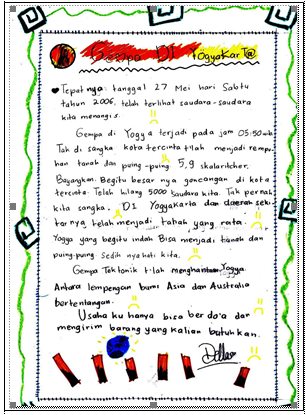 Gempa DI YogyakarT@
Tepatnya tanggal 27 Mei hari Sabtu
tahun 2006. telah terlihat saudara-saudara
kita menangis.
Gempa di Yogya terjadi pada jam 05:50 WIB
Tak di sangka kota tercinta t'lah menjadi rempu-
han tanah dan puing-puing 5,9 skalaricher.
Bayangkan. Begitu besar nya goncangan di kota
tercinta. Telah hilang 5000 saudara kita. Tak pernah
kita sangka. DI Yogyakarta dan daerah seki
tarnya telah menjadi tanah yang rata.
Yogya yang begitu indah Bisa menjadi tanah dan
puing-puing. Sedih nya hati kita.
Gempa Tektonik t'lah menghantam Yogya
Antara lempengan bumi Asia dan Australia
bertentangan.
Usaha ku hanya bisa ber do'a dan
mengirim barang yang kalian butuhkan.